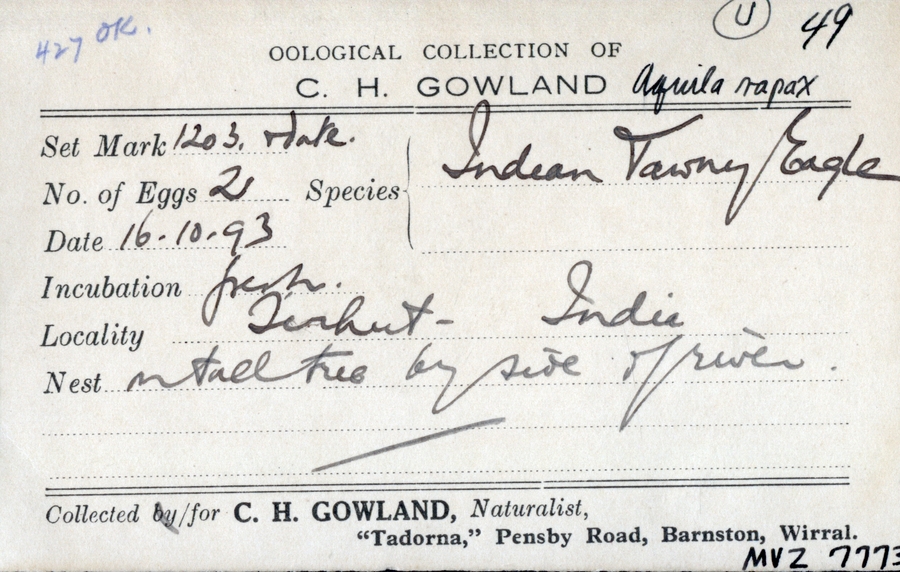 427 OK.
U 49
OOLOGICAL COLLECTION OF
C. H. GOWLAND Aquila rapax
Set Mark 1203.
No. of Eggs 2 Species Indian Tawny Eagle
Date 16-10-93
Incubation fresh.
Locality Tirhut - India
Nest in tall tree by side of river.
Collected by/for C. H. GOWLAND, Naturalist,
"Tadorna," Pensby Road, Barnston, Wirral.
MVZ 7773